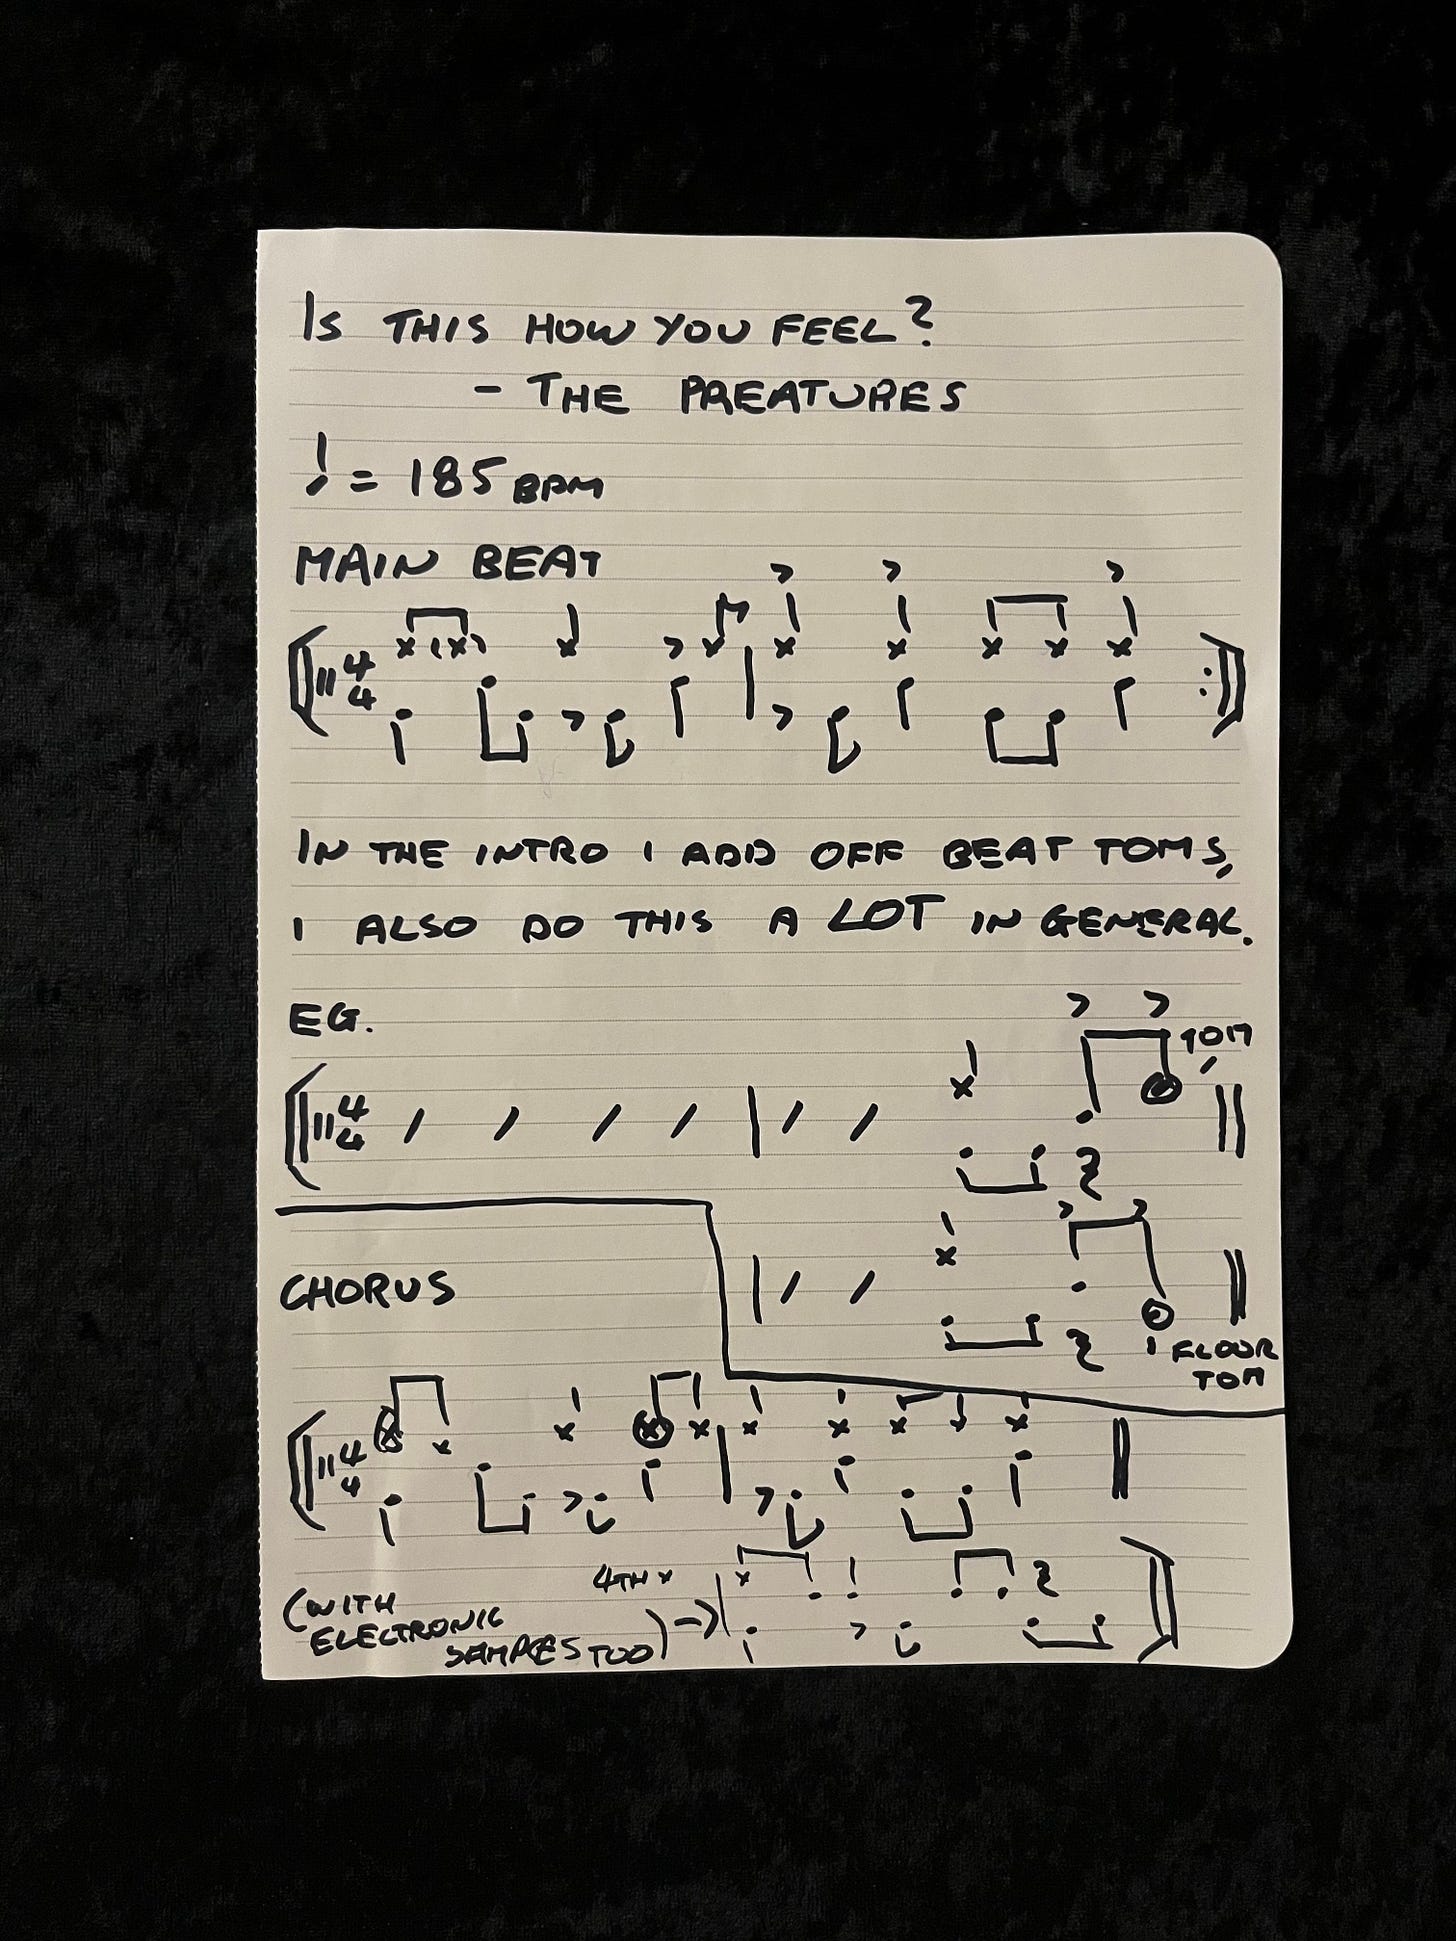 IS THIS HOW YOU FEEL?
- THE PREATURES
♩ = 185 BPM
MAIN BEAT
4
4
IN THE INTRO I ADD OFF BEAT TOMS,
I ALSO DO THIS A LOT IN GENERAL.
EG.
TOM
4
4
CHORUS
FLOOR
TOM
4
4
4TH x
(WITH
ELECTRONIC
SAMPLES TOO)